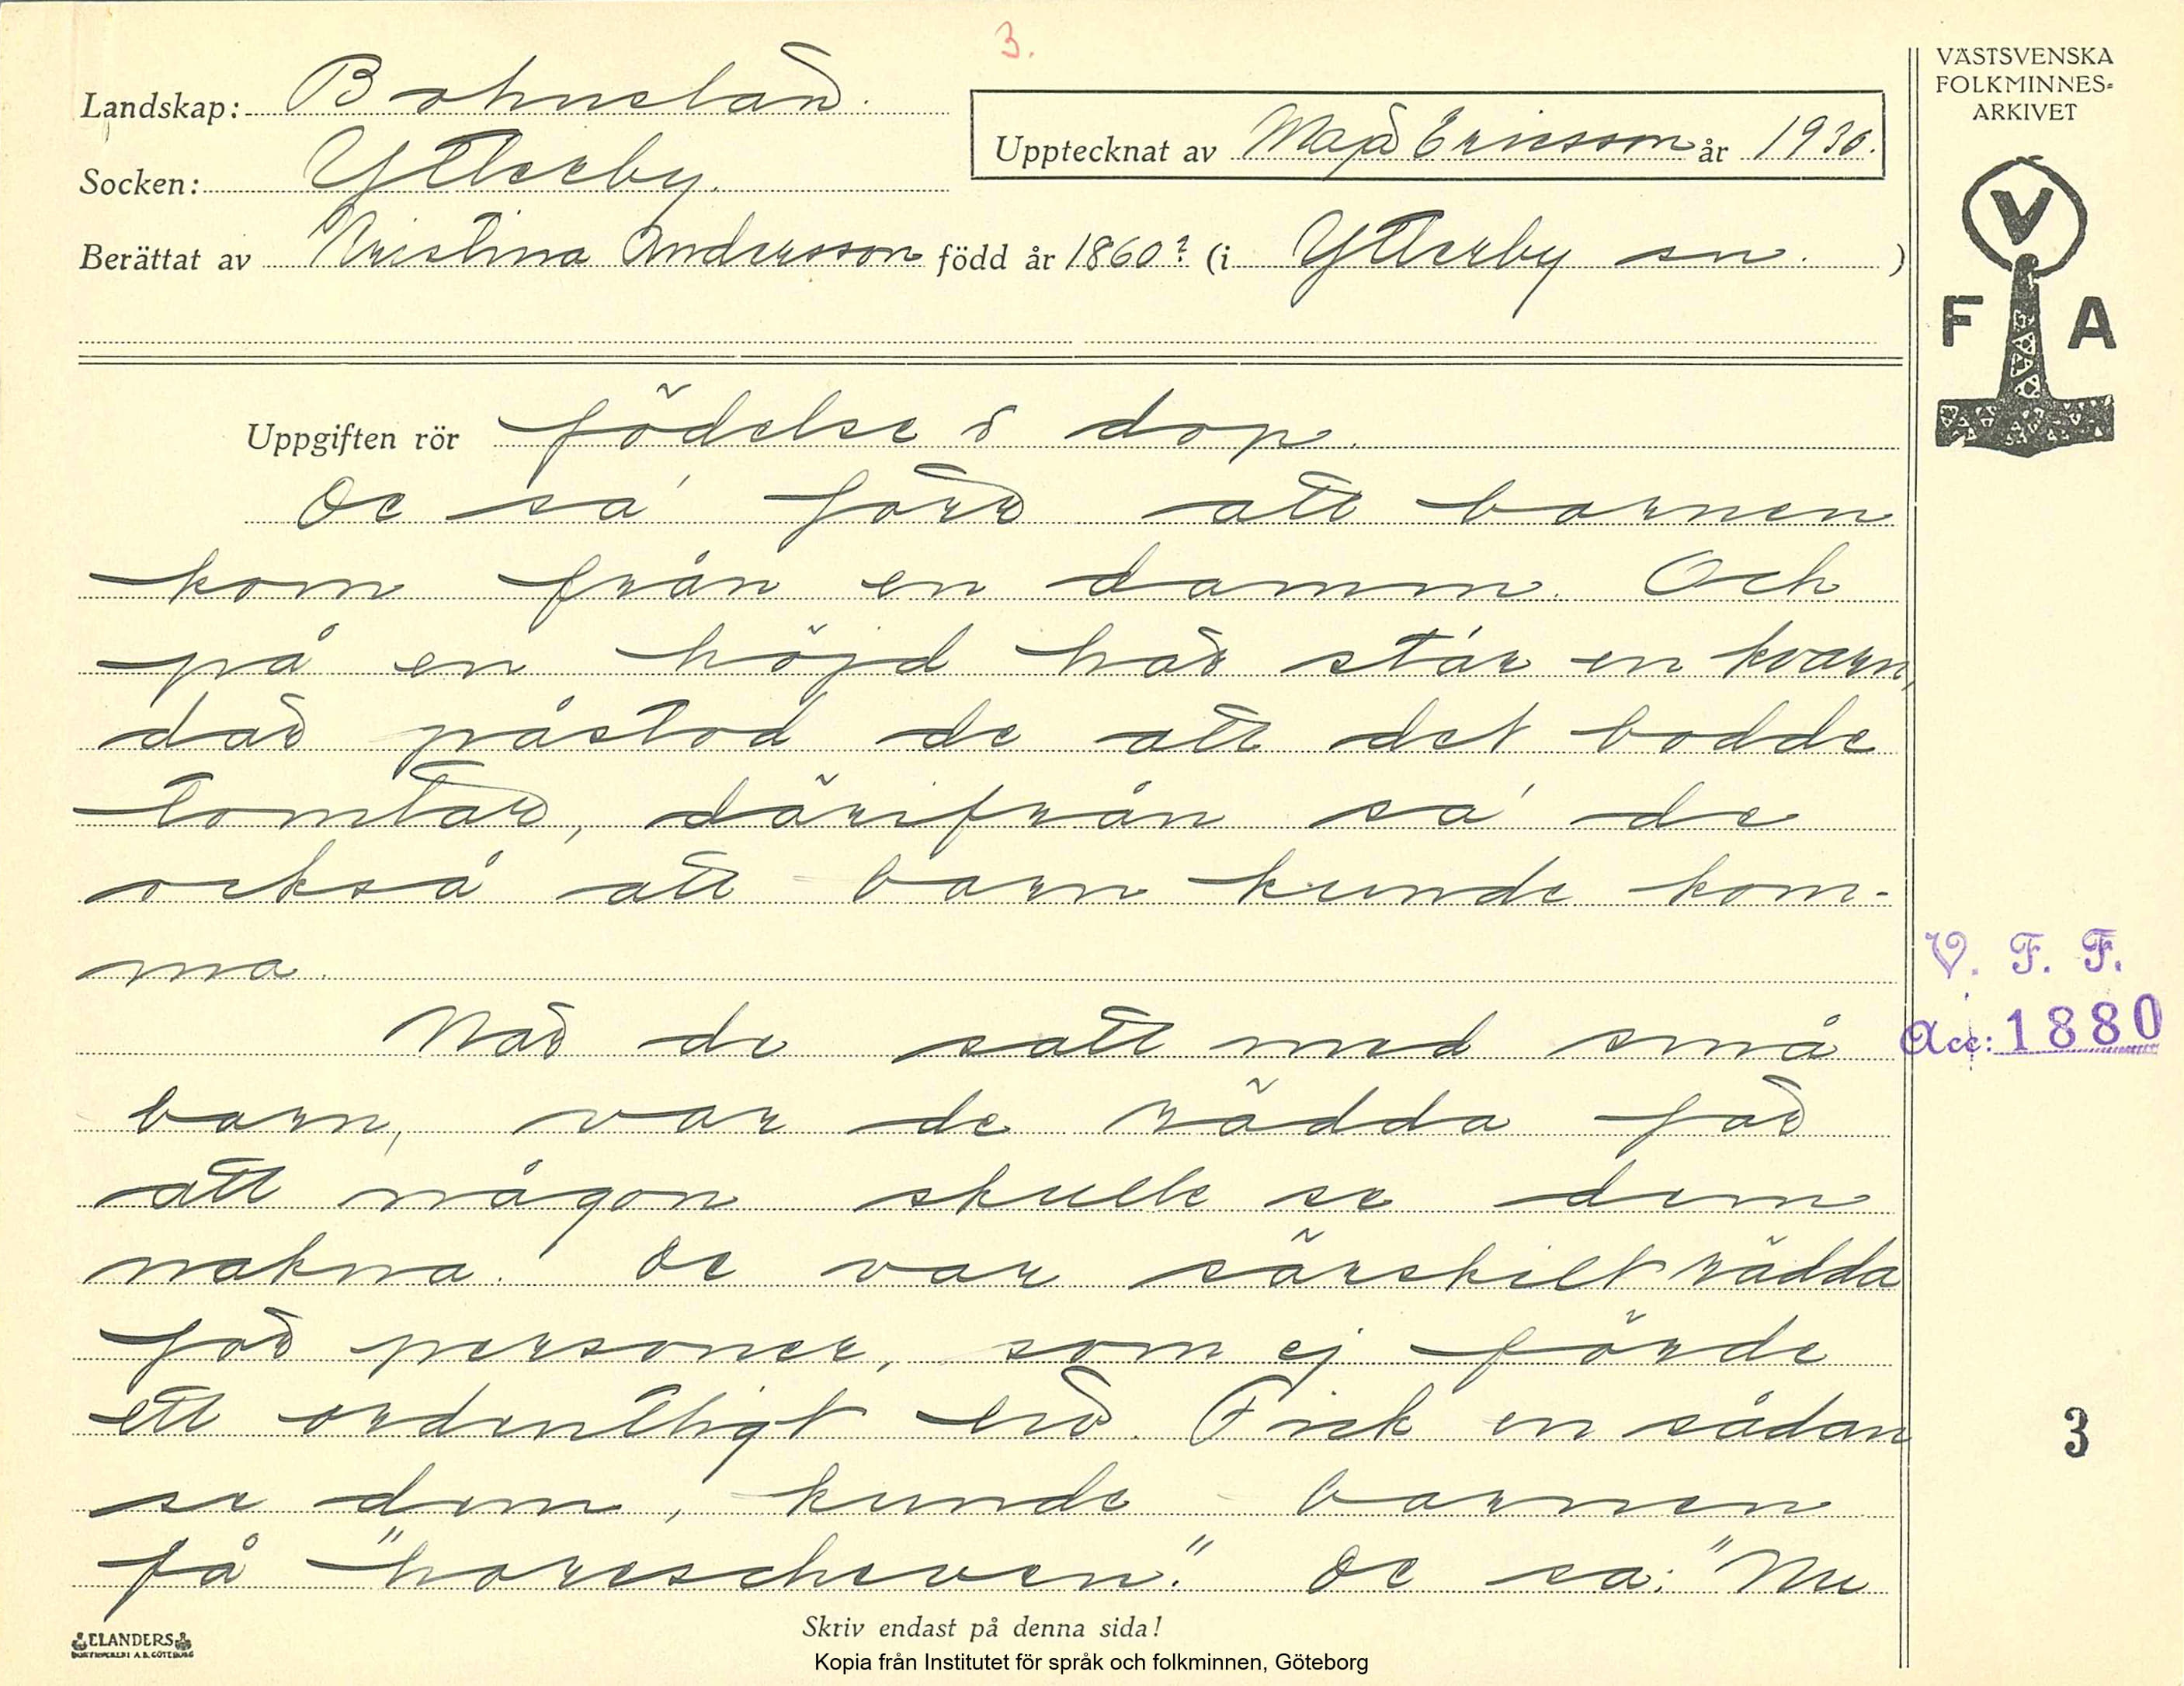 3.
VÄSTSVENSKA
FOLKMINNES-
ARKIVET
Landskap: Bohuslän.
Upptecknat av Maja Ericsson år 1930.
Socken: Ytterby.
Berättat av Kristina Andersson född år 1860? (i Ytterby sn. )
V
F A
Uppgiften rör födelse o dop.
De sa' förr att barnen
kom från en damm. Och
på en höjd här står en kvarn,
där påstod de att det bodde
tomtar, därifrån sa' de
också att barn kunde kom-
ma.
När de satt med små
barn, var de rädda för
att någon skulle se dem
nakna. De var särskilt rädda
för personer, som ej förde
ett ordentligt liv. Fick en sådan
se dem, kunde barnen
få "horescheven." De sa: "Nu
V. F. F.
Acc: 1880
3
Skriv endast på denna sida!
ELANDERS
BOKTRYCKERI A.B. GÖTEBORG
Kopia från Institutet för språk och folkminnen, Göteborg